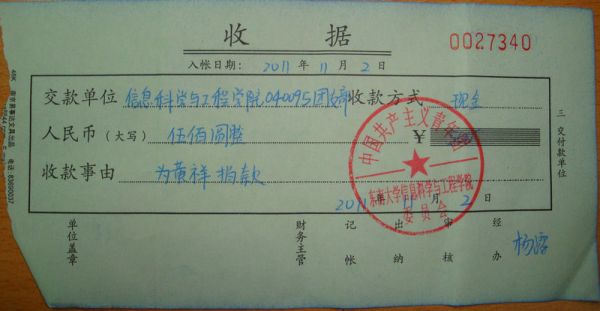 收据
0027340
入帐日期： 2011 年 11 月 2 日
交款单位 信息科学与工程学院040095团支部 收款方式 现金
人民币（大写） 伍佰圆整 ￥
收款事由 为黄祥捐款
中国共产主义青年团
东南大学信息科学与工程学院
委员会
2011 年 11 月 2 日
三 交付款单位
单位盖章 财务主管 记帐 出纳 审核 经办